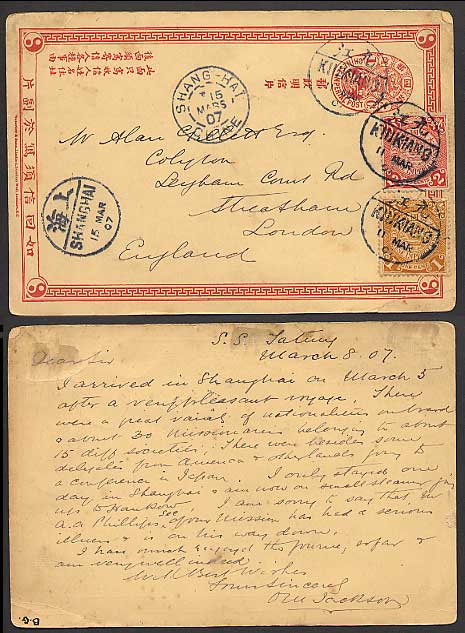 郵政
明信片
此面只寫收信人名姓住址
後面寫寄信人各種事由
SHANG-HAI
15
MARS
07
CHINE
KIUKIANG
11 MAR
KIUKIANG
11 MAR
2
KIUKIANG
11 MAR
1
Mr Alan Esq.
Colyton
Leyham Court Rd
Streatham
London
England
上海
SHANGHAI
15 MAR
07
S.S. Tatung
March 8. 07.
Dear Sir
I arrived in Shanghai on March 5
after a very pleasant voyage. There
were a great variety of nationalities on board
& about 30 Missionaries belonging to about
15 diff societies. There were besides some
delegates from America & other lands going to
a conference in Japan. I only stayed one
day in Shanghai & am now on small steamer going
up to Hankow. I am sorry to say that Mr
A.A. Phillips, Sec of our Mission has had a serious
illness & is on his way down.
I have much enjoyed the journey so far &
am very well indeed
With Best Wishes
Yours Sincerely
Jackson
B-G.